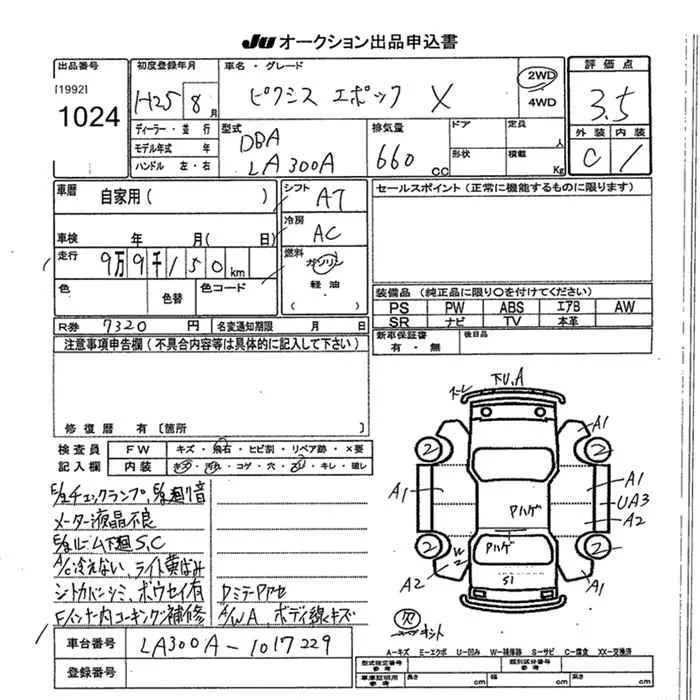 JU オークション出品申込書
出品番号
[1992]
1024
初度登録年月
H25 8月
車名・グレード
ピクシス エポック X
2WD
4WD
評価点
3.5
外装 内装
C 1
ディーラー・並行
モデル年式 年
ハンドル 左・右
型式
DBA
LA300A
排気量
660 cc
ドア
形状
定員 人
積載 Kg
車歴
自家用( )
シフト
AT
セールスポイント (正常に機能するものに限ります)
車検 年 月( 日)
冷房
AC
走行
9万9千150km
燃料
ガソリン
軽油
色
色替
色コード
装備品 (純正品に限り○を付けてください)
PS PW ABS エアB AW
SR ナビ TV 本革
R券 7320 円
名変通知期限 月 日
新車保証書
有・無
後日品
注意事項申告欄 (不具合内容等は具体的に記入して下さい)
修復歴 有 〔箇所 〕
検査員
記入欄
FW キズ・飛石・ヒビ割・リペア跡・×要
内装 コゲ・穴・キレ・破レ
E/gチェックランプ,
メーター液晶不良
下廻S,C
A/C冷えない, ライト黄ばみ
シートカバーシミ, ボウセイ有
Fインナー内コーキング補修
A/W A, ボディ線キズ
下U,A
A1
2
2
A1
A1
UA3
A2
Pハゲ
Pハゲ
2
W2
2
A2
S1
A1
欠
車台番号 LA300A-1017229
登録番号
A-キズ E-エクボ U-凹み W-補修跡 S-サビ C-腐食 XX-交換済
型式指定番号
参考
類別区分番号
参考
車庫証明用
参考
長さ cm
幅 cm
高さ cm